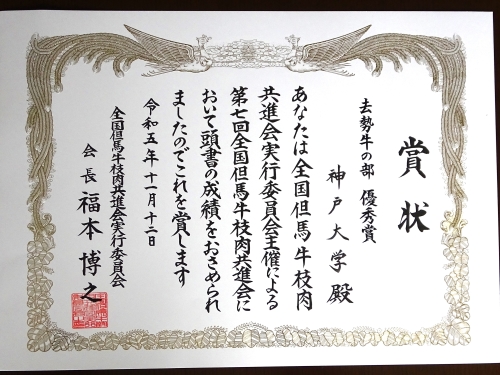 賞状
去勢牛の部 優秀賞
神戸大学殿
あなたは全国但馬牛枝肉
共進会実行委員会主催による
第七回全国但馬牛枝肉共進会に
おいて頭書の成績をおさめられ
ましたのでこれを賞します
令和五年十一月十二日
全国但馬牛枝肉共進会実行委員会
会長 福本博之